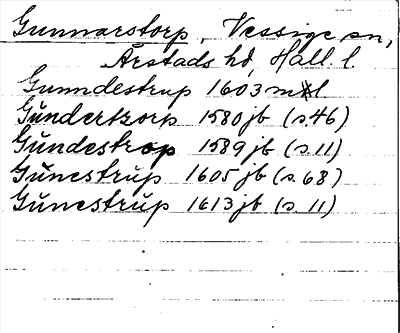 Gunnarstorp, Vessige sn,
Årstads hd, Hall. l.
Gunndestrup 1603 mtl
Gŭndertzorp 1580 jb (s. 46)
Gŭndestrop 1589 jb (s. 11)
Gŭnestrŭp 1605 jb (s. 68)
Gŭnestrŭp 1613 jb (s. 11)